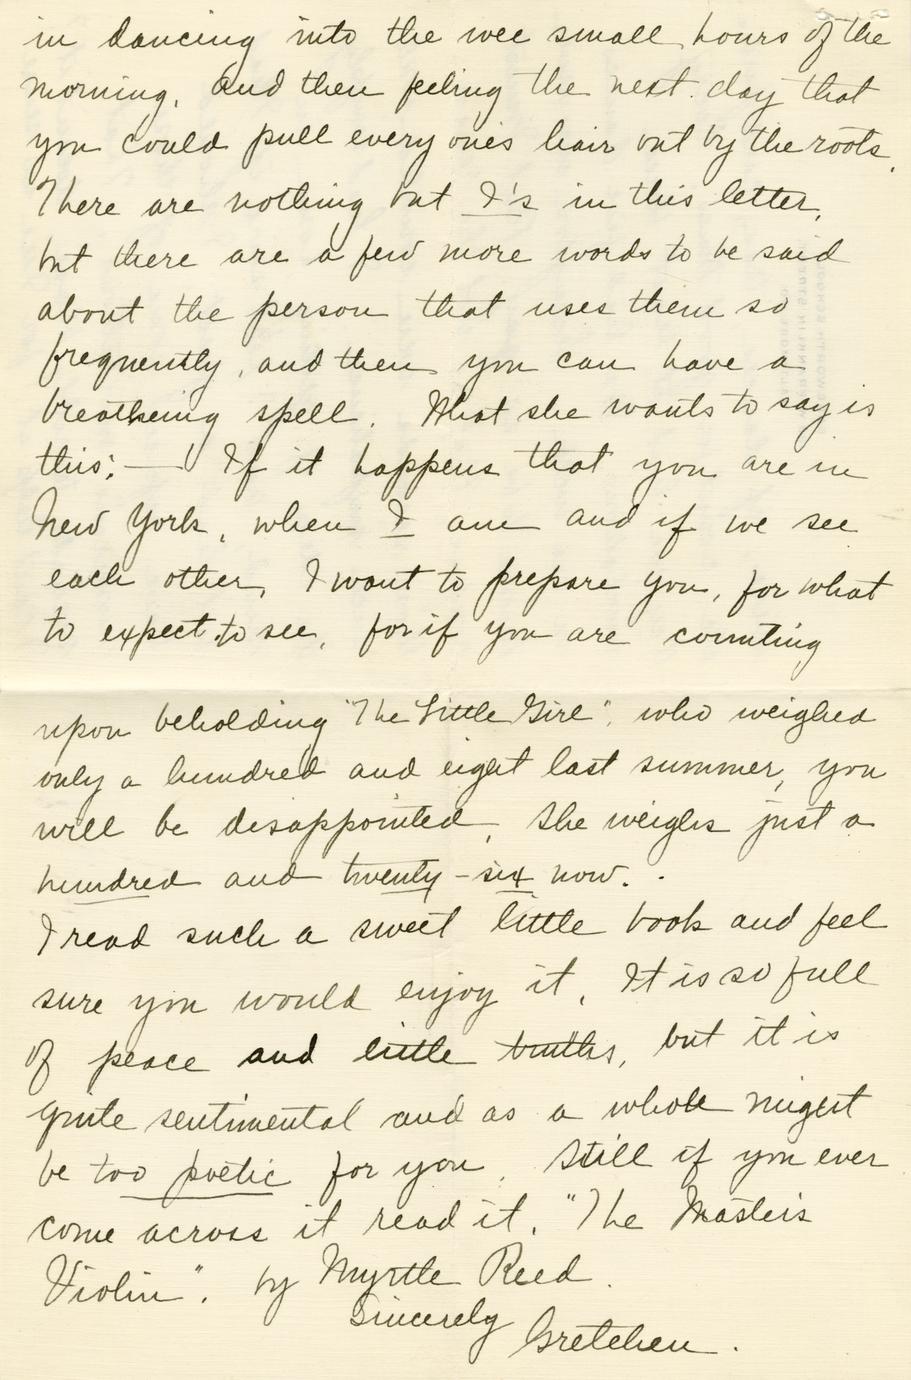 in dancing into the wee small hours of the
morning, and then feeling the next day that
you could pull every one's hair out by the roots.
There are nothing but I's in this letter,
but there are a few more words to be said
about the person that uses them so
frequently, and then you can have a
breatheing spell. What she wants to say is
this; — If it happens that you are in
New York, when I am and if we see
each other, I want to prepare you, for what
to expect to see, for if you are counting
upon beholding "The Little Girl", who weighed
only a hundred and eight last summer, you
will be disappointed, She weighs just a
hundred and twenty-six now.
I read such a sweet little book and feel
sure you would enjoy it. It is so full
of peace and little truths, but it is
quite sentimental and as a whole might
be too poetic for you. Still if you ever
come across it read it. "The Master's
Violin". by Myrtle Reed.
Sincerely
Gretchen.